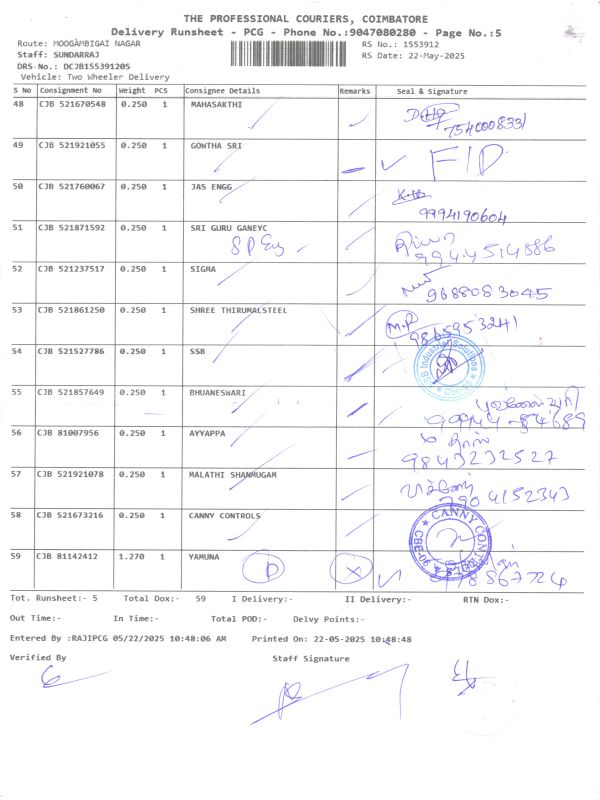 THE PROFESSIONAL COURIERS, COIMBATORE
Delivery Runsheet - PCG - Phone No.:9047080280 - Page No.:5
Route: MOOGAMBIGAI NAGAR RS No.: 1553912
Staff: SUNDARRAJ RS Date: 22-May-2025
DRS-No.: DCJB155391205
Vehicle: Two Wheeler Delivery
S No Consignment No Weight PCS Consignee Details Remarks Seal & Signature
48 CJB 521670548 0.250 1 MAHASAKTHI
7540008331
49 CJB 521921055 0.250 1 GOWTHA SRI
50 CJB 521760067 0.250 1 JAS ENGG
9994190604
51 CJB 521871592 0.250 1 SRI GURU GANEYC
S P Eng 9944514886
52 CJB 521237517 0.250 1 SIGMA
9688083045
53 CJB 521861250 0.250 1 SHREE THIRUMALSTEEL M.P
9865953241
54 CJB 521527786 0.250 1 SSB
55 CJB 521857649 0.250 1 BHUANESWARI
56 CJB 81007956 0.250 1 AYYAPPA
9843232527
57 CJB 521921078 0.250 1 MALATHI SHANMUGAM
58 CJB 521673216 0.250 1 CANNY CONTROLS
59 CJB 81142412 1.270 1 YAMUNA D X
Tot. Runsheet:- 5 Total Dox:- 59 I Delivery:- II Delivery:- RTN Dox:-
Out Time:- In Time:- Total POD:- Delvy Points:-
Entered By :RAJIPCG 05/22/2025 10:48:06 AM Printed On: 22-05-2025 10:48:48
Verified By Staff Signature